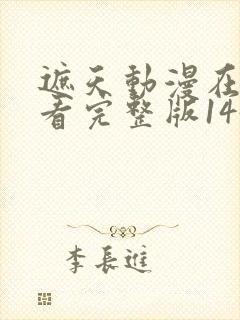 遮天動漫在
看完整版14
李長進